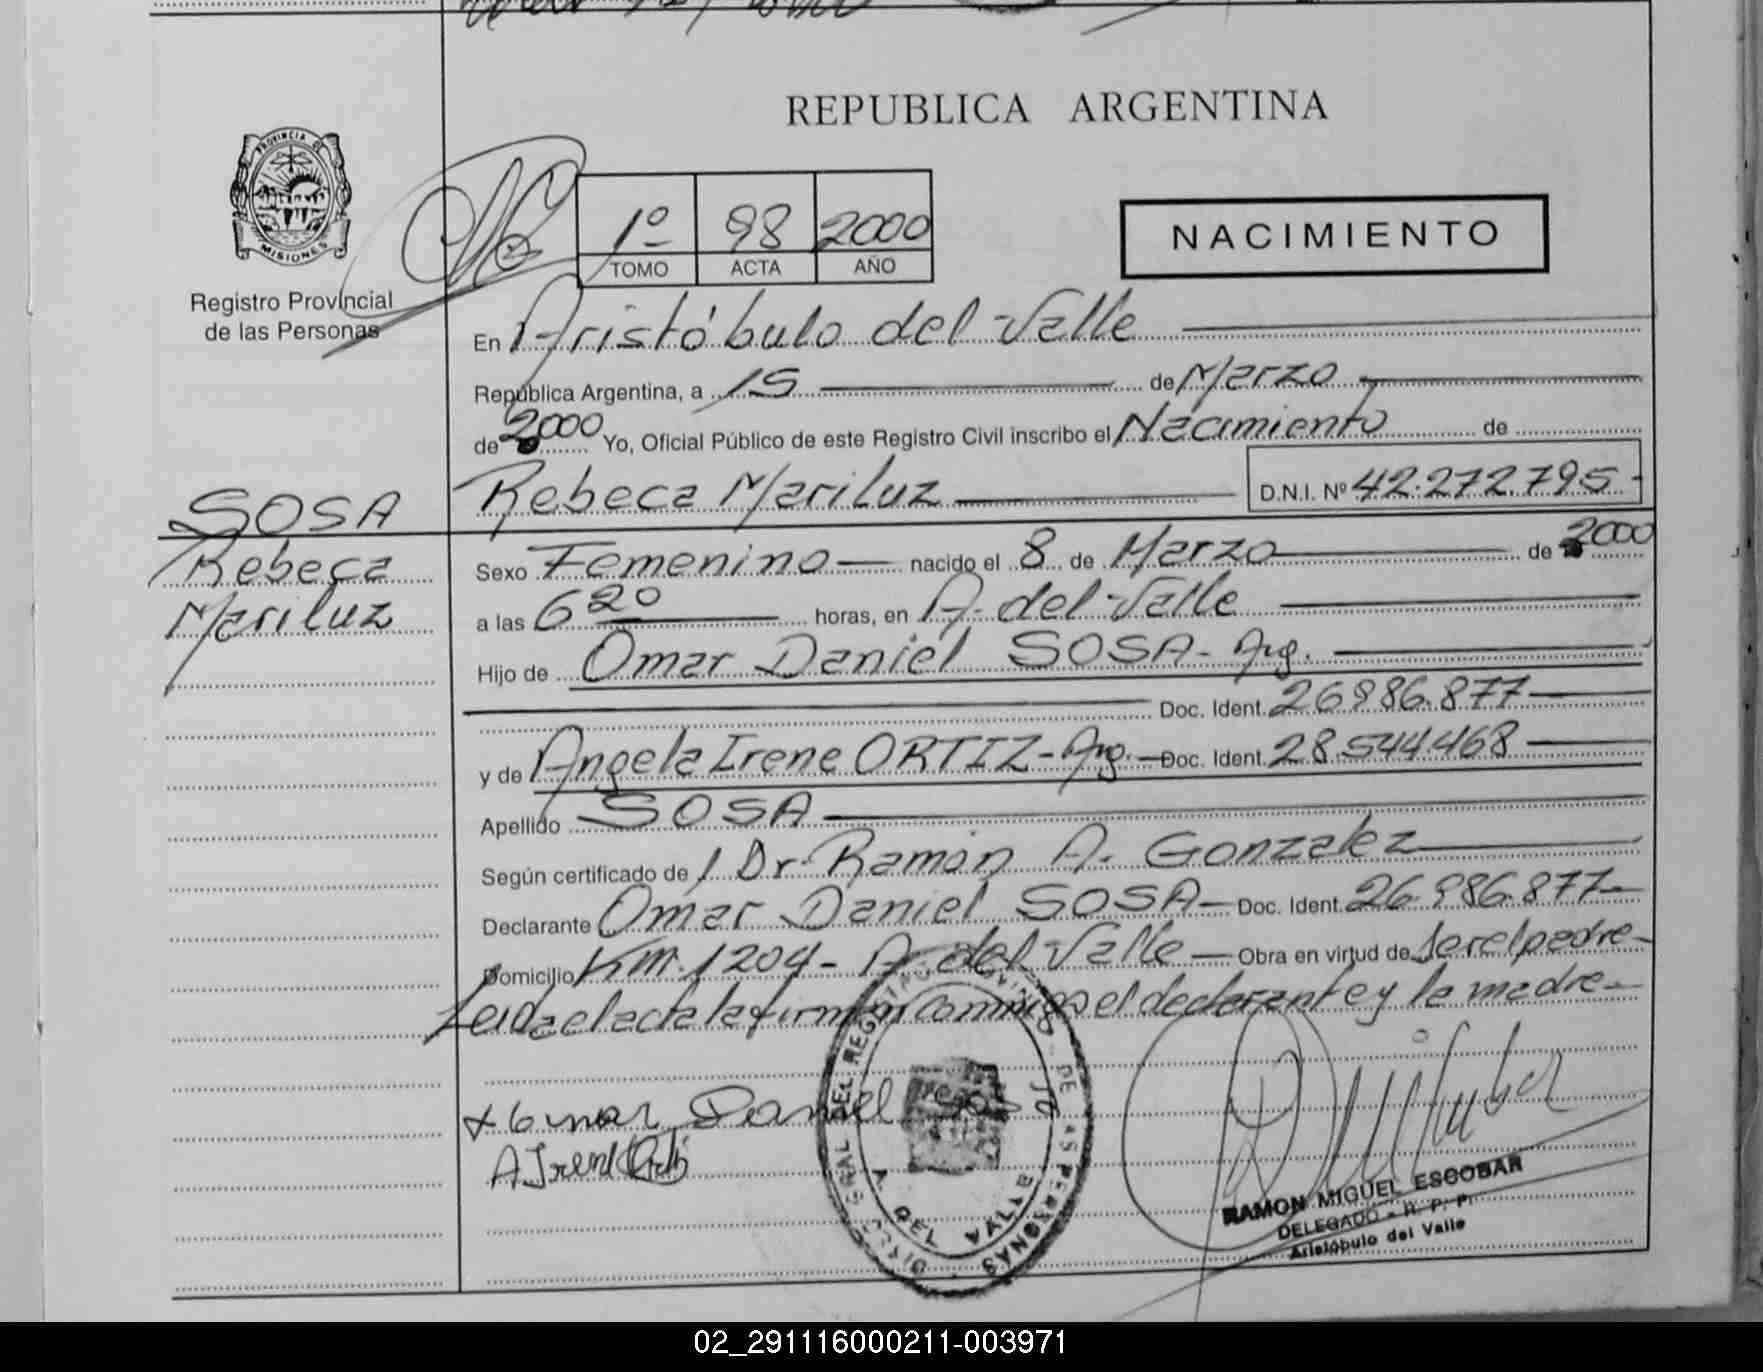 REPUBLICA ARGENTINA
PROVINCIA DE
MISIONES
Registro Provincial
de las Personas
1º 98 2000
TOMO ACTA AÑO
NACIMIENTO
En Aristóbulo del Valle
República Argentina, a 15 de Marzo
de 2000 Yo, Oficial Público de este Registro Civil inscribo el Nacimiento de
Rebeca Mariluz D.N.I. Nº 42.272.795-
SOSA
Rebeca
Mariluz
Sexo Femenino nacido el 8 de Marzo de 2000
a las 6 20 horas, en A. del Valle
Hijo de Omar Daniel SOSA- Arg.
Doc. Ident. 26.986.877
y de Angela Irene ORTIZ- Arg. Doc. Ident. 28.544.468
Apellido SOSA
Según certificado de 1 Dr. Ramón A. Gonzalez
Declarante Omar Daniel SOSA Doc. Ident. 26.986.877
Domicilio Km. 1204- A. del Valle Obra en virtud de ser el padre-
Leida el acta la firman conmigo el declarante y la madre-
Omar Daniel Sosa
A Irene Ortiz
DE LAS PERSONAS
A. DEL VALLE
RAMON MIGUEL ESCOBAR
DELEGADO - R. P. P.
Aristóbulo del Valle
02_291116000211-003971